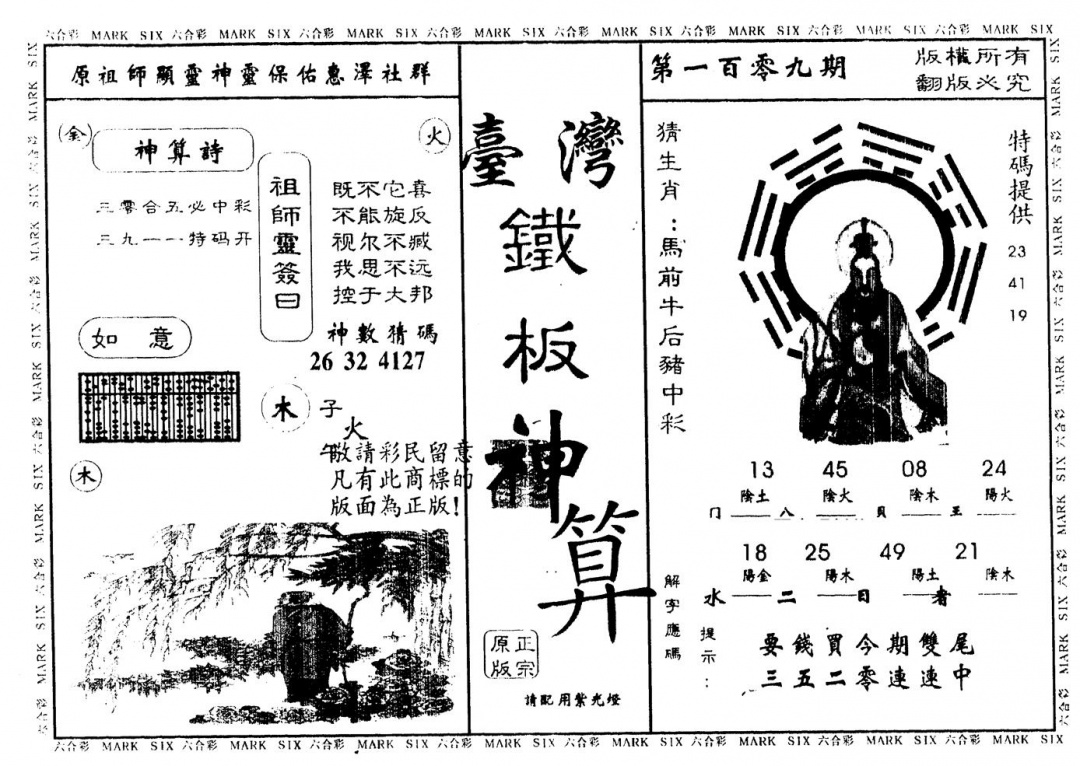 六合彩 MARK SIX 六合彩 MARK SIX 六合彩 MARK SIX 六合彩 MARK SIX 六合彩 MARK SIX 六合彩 MARK SIX 六合彩 MARK SIX 六合彩 MARK SIX
原祖師顯靈神靈保佑惠澤社群
金
神算詩
火
三零合五必中彩
三九一一特码开
祖師靈簽曰
既不它喜
不能旋反
视尔不臧
我思不远
控于大邦
神數猜碼
26 32 4127
如意
木
子
火
午敬請彩民留意
凡有此商標的
版面為正版!
木
臺灣
鐵
板
神
算
正宗
原版
請配用紫光燈
第一百零九期
版權所有
翻版必究
猜生肖:馬前牛后豬中彩
特碼提供
23
41
19
13 45 08 24
陰土 陰火 陰木 陽火
门 八 貝 王
18 25 49 21
陽金 陽木 陽土 陰木
水 二 日 者
解字應碼
提示:
要錢買今期雙尾
三五二零連連中
六合彩 MARK SIX 六合彩 MARK SIX 六合彩 MARK SIX 六合彩 MARK SIX 六合彩 MARK SIX 六合彩 MARK SIX 六合彩 MARK SIX 六合彩 MARK SIX